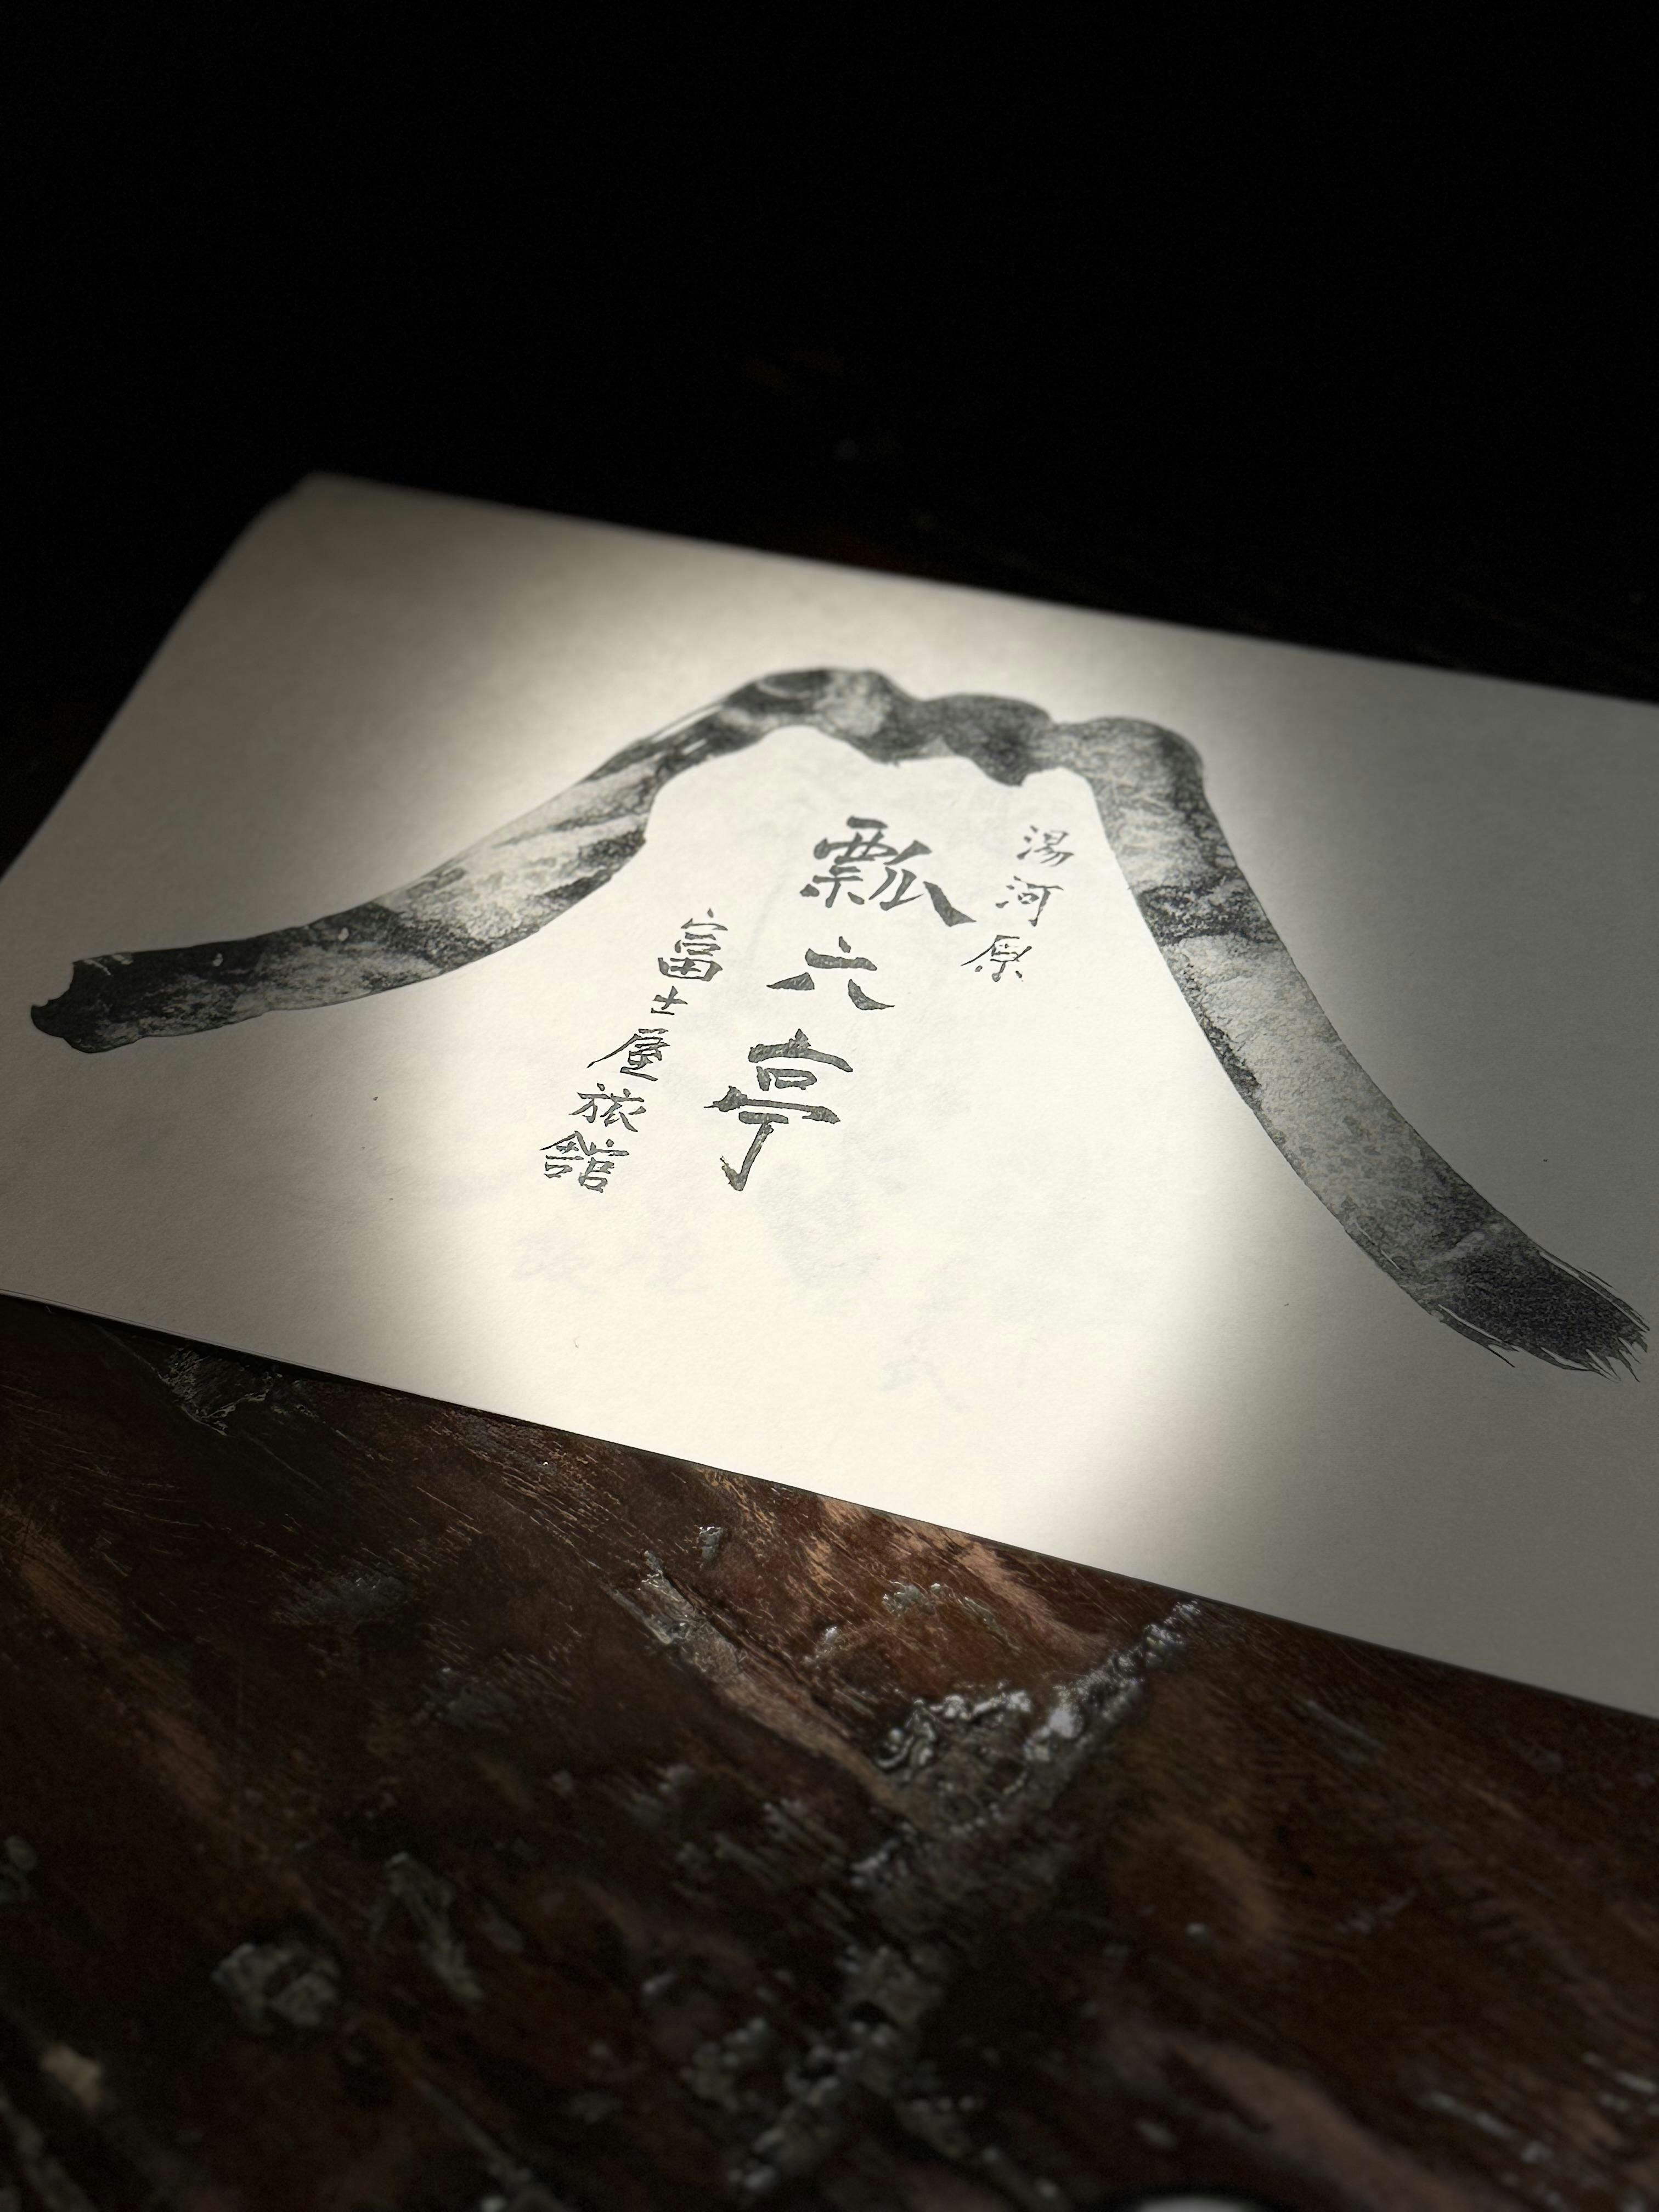 湯河原
瓢六亭
富士屋旅館